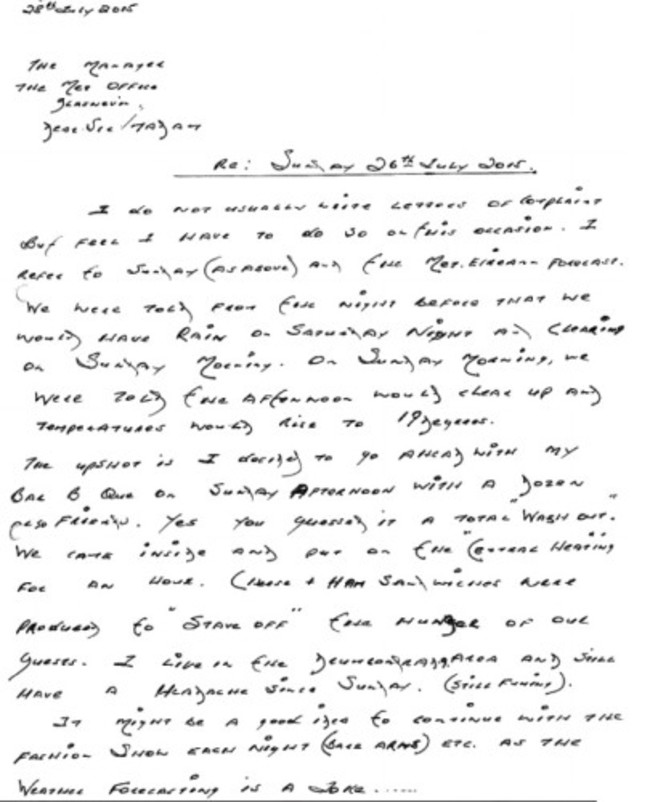 28th July 2015
The Manager
The Met Office
Glasnevin,
Dear Sir/Madam
Re: Sunday 26th July 2015.
I do not usually write letters of complaint
But feel I have to do so on this occasion. I
refer to Sunday (as above) and the Met. Eireann Forecast.
We were told from the night before that we
would have rain on Saturday night and clearing
on Sunday Morning. On Sunday Morning, we
were told the afternoon would clear up and
temperatures would rise to 19 degrees.
The upshot is I decided to go ahead with my
Bar B Que on Sunday Afternoon with a dozen
or so friends. Yes you guessed it a total "Wash out".
We came inside and put on the "Central Heating"
for an hour. Cheese + Ham Sandwiches were
produced to "Stave off" the hunger of our
guests. I live in the Drumcondra area and still
have a headache since Sunday. (Still fuming).
It might be a good idea to continue with the
fashion show each night (bare arms) etc. as the
weather forecasting is a joke......